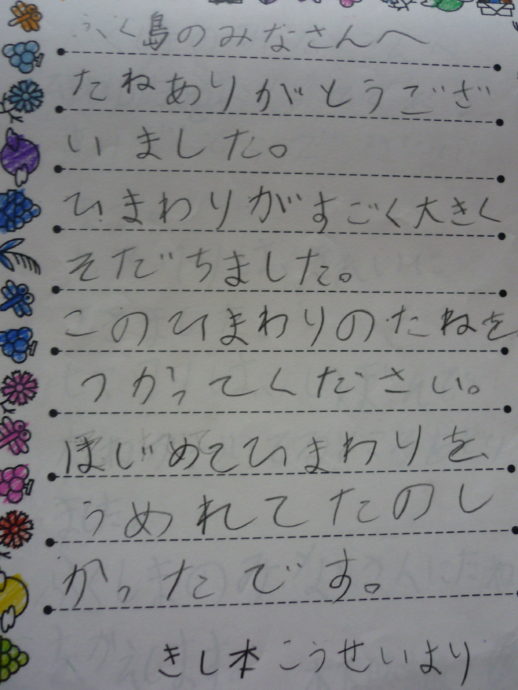 ふく島のみなさんへ
たねありがとうござ
いました。
ひまわりがすごく大きく
そだちました。
このひまわりのたねを
つかってください。
はじめてひまわりを
うめれてたのし
かったです。
きし本こうせいより